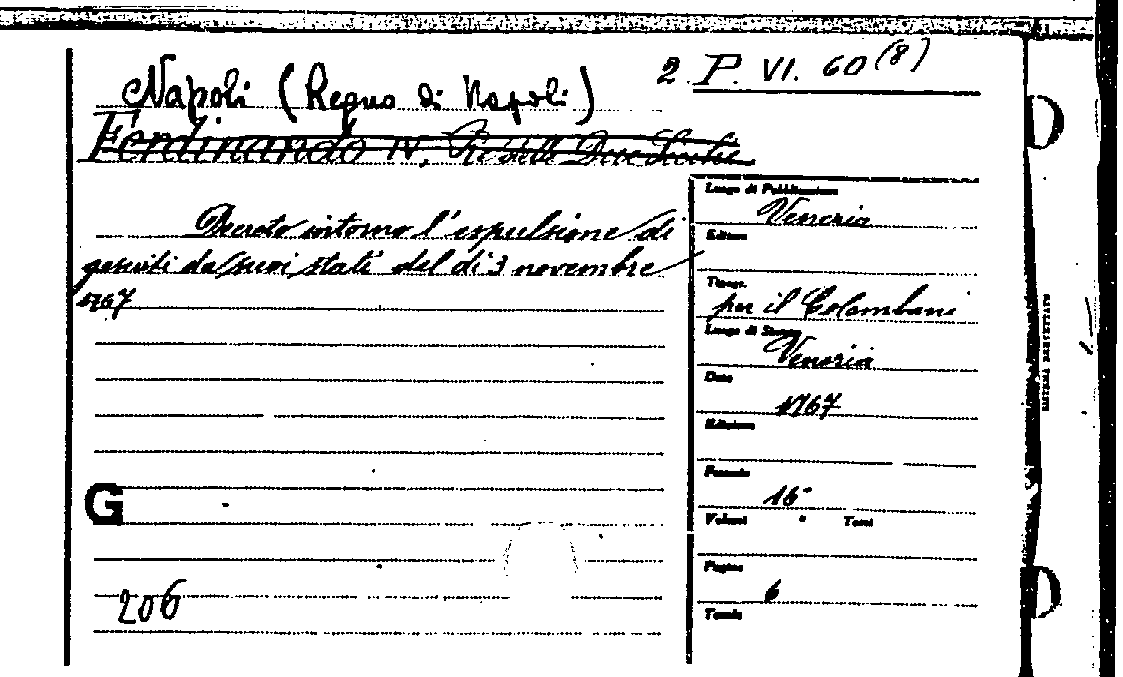 2. P. VI. 60 (8)
Napoli (Regno di Napoli)
Ferdinando IV, Re delle Due Sicilie
Decreto intorno l'espulsione di
gesuiti da suoi stati del di 3 novembre
1767
Luogo di Pubblicazione
Venezia
Editore
Tipogr.
per il Colombani
Luogo di Stampa
Venezia
Data
1767
Edizione
Formato
16°
Volumi Tomi
Pagine
6
Tavole
G
206